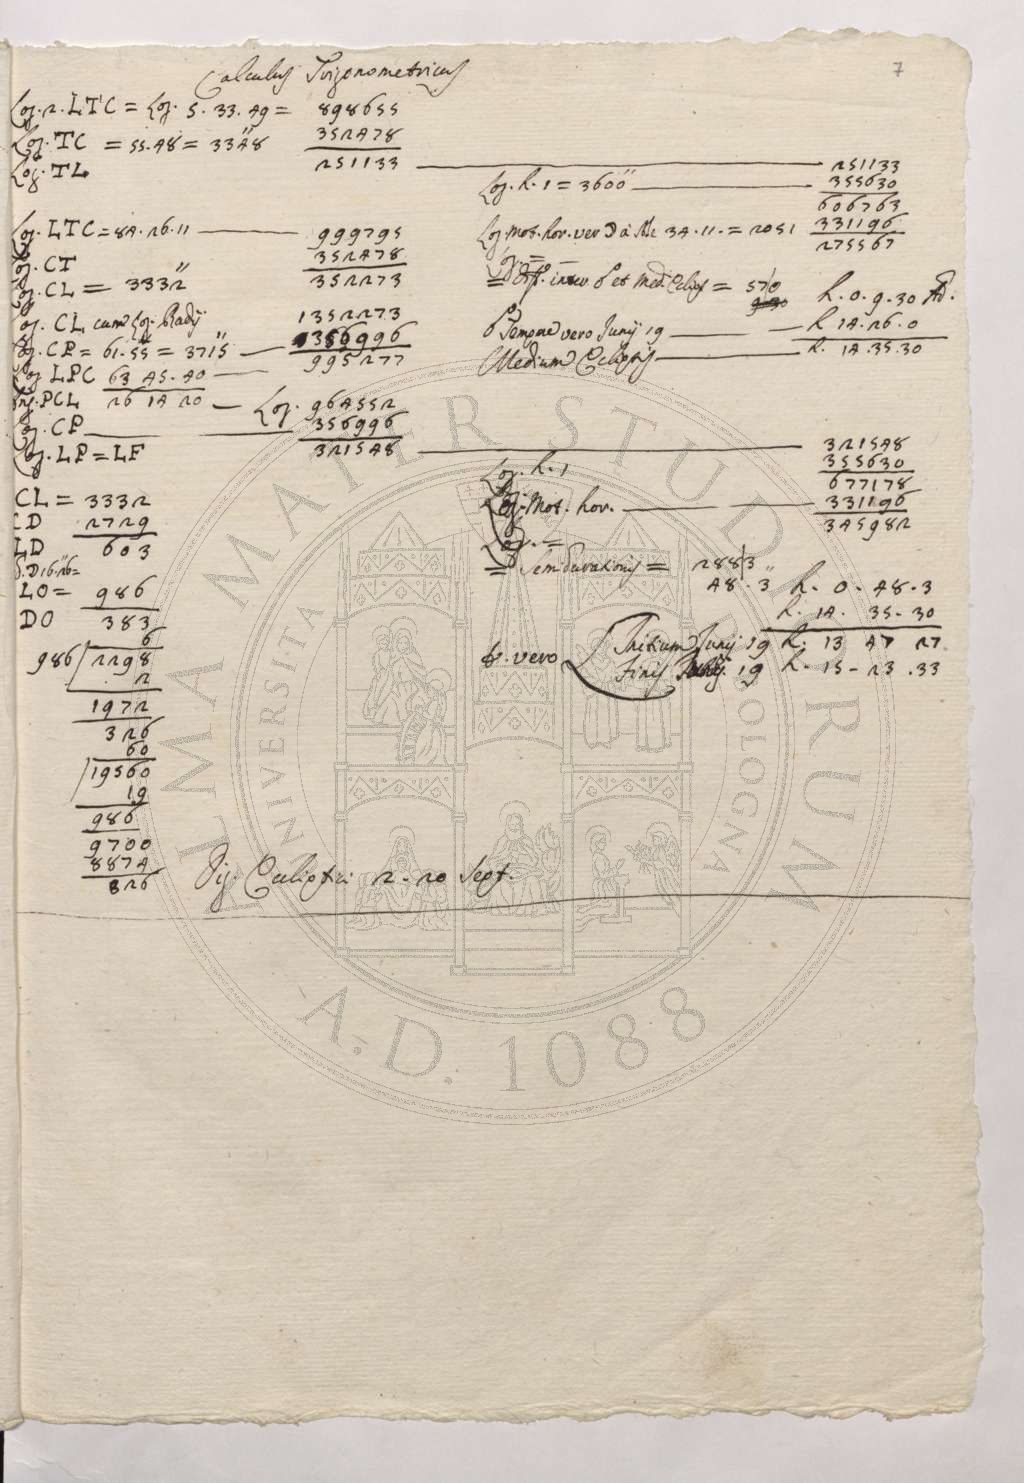 7
Calculus Trigonometricus
Log. r. LTC = Log. 5. 33. 49 = 898655
Log. TC = 55.48 = 3348" 352478
Log. TL 251133
Log. LTC = 84. 26. 11 999795
Log. CT 352478
Log. CL = 3332" 352273
Log. CL cum Log. Radij 1352273
Log. CP = 61. 55 = 3715" 356996
Log LPC 63 45. 40 995277
Ang. PCL 26 14 20 Log. 964552
Log. CP 356996
Log. LP = LF 321548
CL = 3332
CD 2729
LD 603
LO = 986
DO 383
6
986 2298
2
1972
326
60
19560
19
986
9700
8874
826
251133
Log. h. 1 = 3600" 355630
606763
Log. Mot. hor. ver 34. 11. = 2051 331196
Log. = 275567
= diff. inter et Med. Eclips = 570
h. 0. 9. 30 Ad.
Tempore vero Junij 19 h 14. 26. 0
Medium Eclipsis h. 14. 35. 30
321548
Log. h. 1 355630
677178
Log. Mot. hor. 331196
Log. = 345982
= Semidurationis = 2883
48. 3 h. 0. 48. 3
h. 14. 35. 30
t. vero Initium Junij 19 h. 13 47 27
Finis Junij 19 h. 15 - 23. 33
Dig. Ecliptici 2. 20 Sept.
ALMA MATER STUDIORUM
UNIVERSITÀ DI BOLOGNA
A.D. 1088